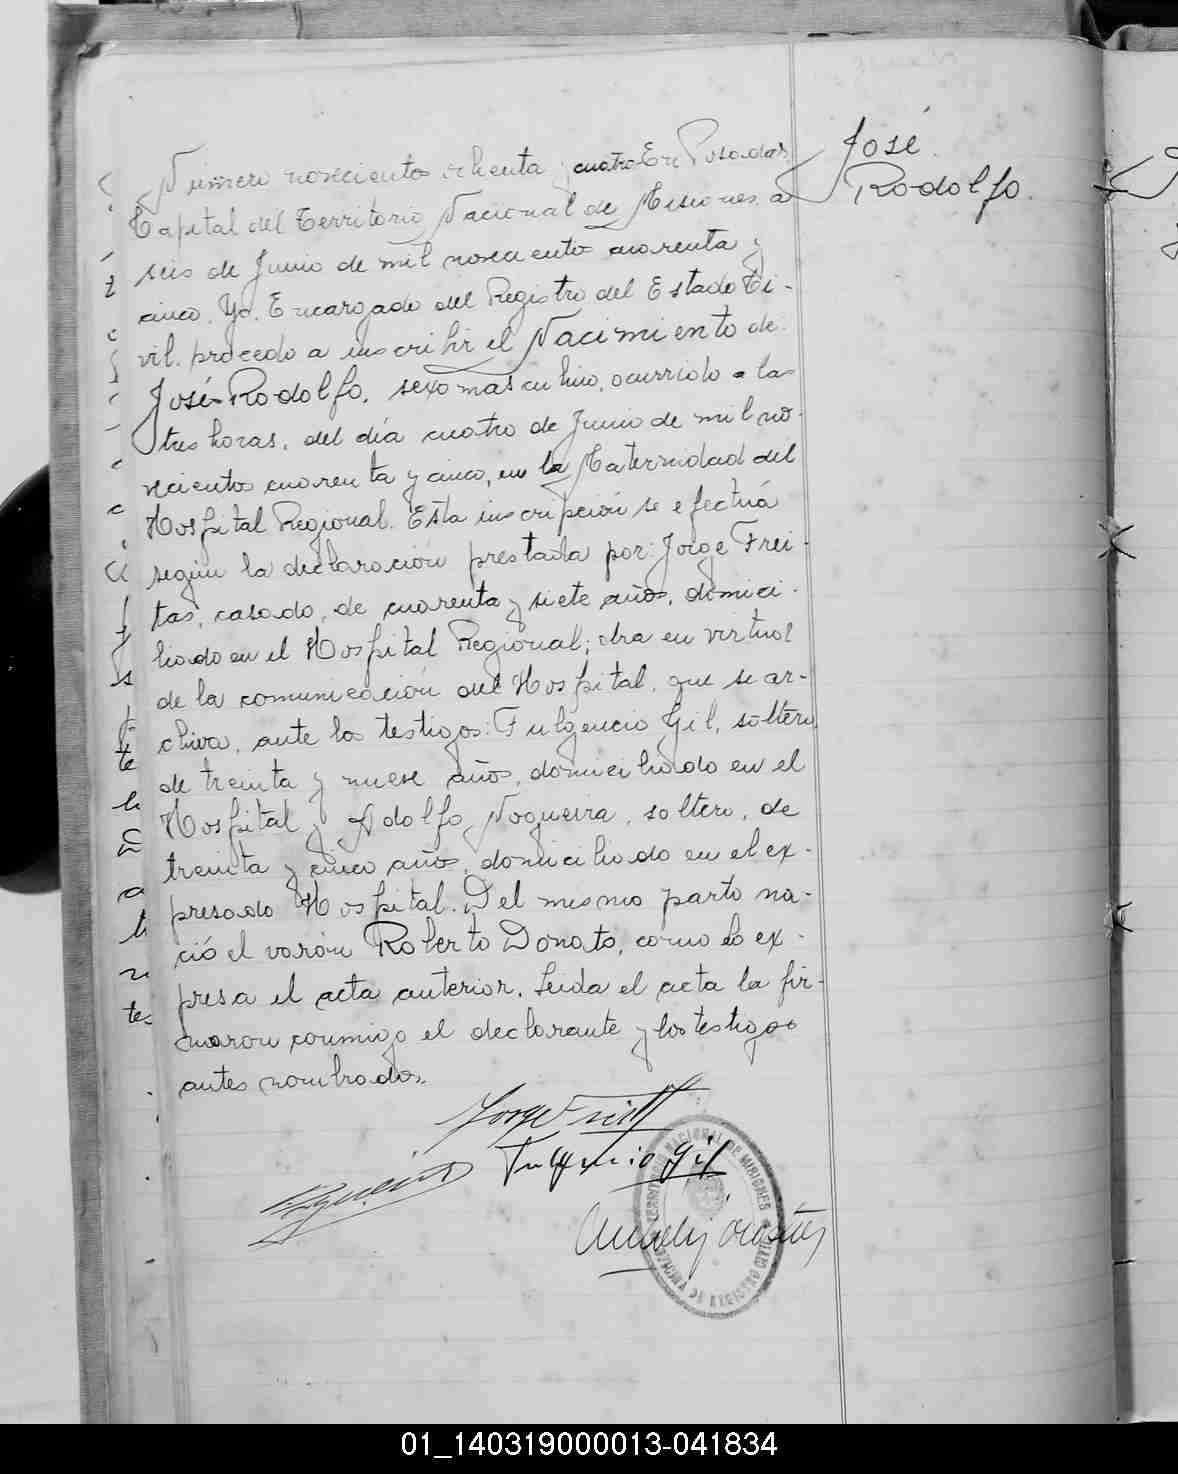 José
Rodolfo.
Número novecientos ochenta y cuatro En Posadas
Capital del Territorio Nacional de Misiones, a
seis de Junio de mil novecientos cuarenta y
cinco. Yo. Encargado del Registro del Estado Ci-
vil. procedo a inscribir el Nacimiento de:
José Rodolfo, sexo masculino, ocurrido a las
tres horas, del día cuatro de Junio de mil no-
vecientos cuarenta y cinco, en la Maternidad del
Hospital Regional. Esta inscripción se efectuá
según la declaración prestada por: Jorge Frei-
tas, casado, de cuarenta y siete años, domici-
liado en el Hospital Regional; obra en virtud
de la comunicación del Hospital, que se ar-
chiva, ante los testigos: Fulgencio Gil, soltero
de treinta y nueve años, domiciliado en el
Hospital y Adolfo Nogueira, soltero, de
treinta y cinco años, domiciliado en el ex-
presado Hospital. Del mismo parto na-
ció el varón Roberto Donato, como lo ex-
presa el acta anterior. Leida el acta la fir-
maron conmigo el declarante y los testigos
antes nombrados.
Fulgencio Gil
TERRITORIO NACIONAL DE MISIONES
01_140319000013-041834